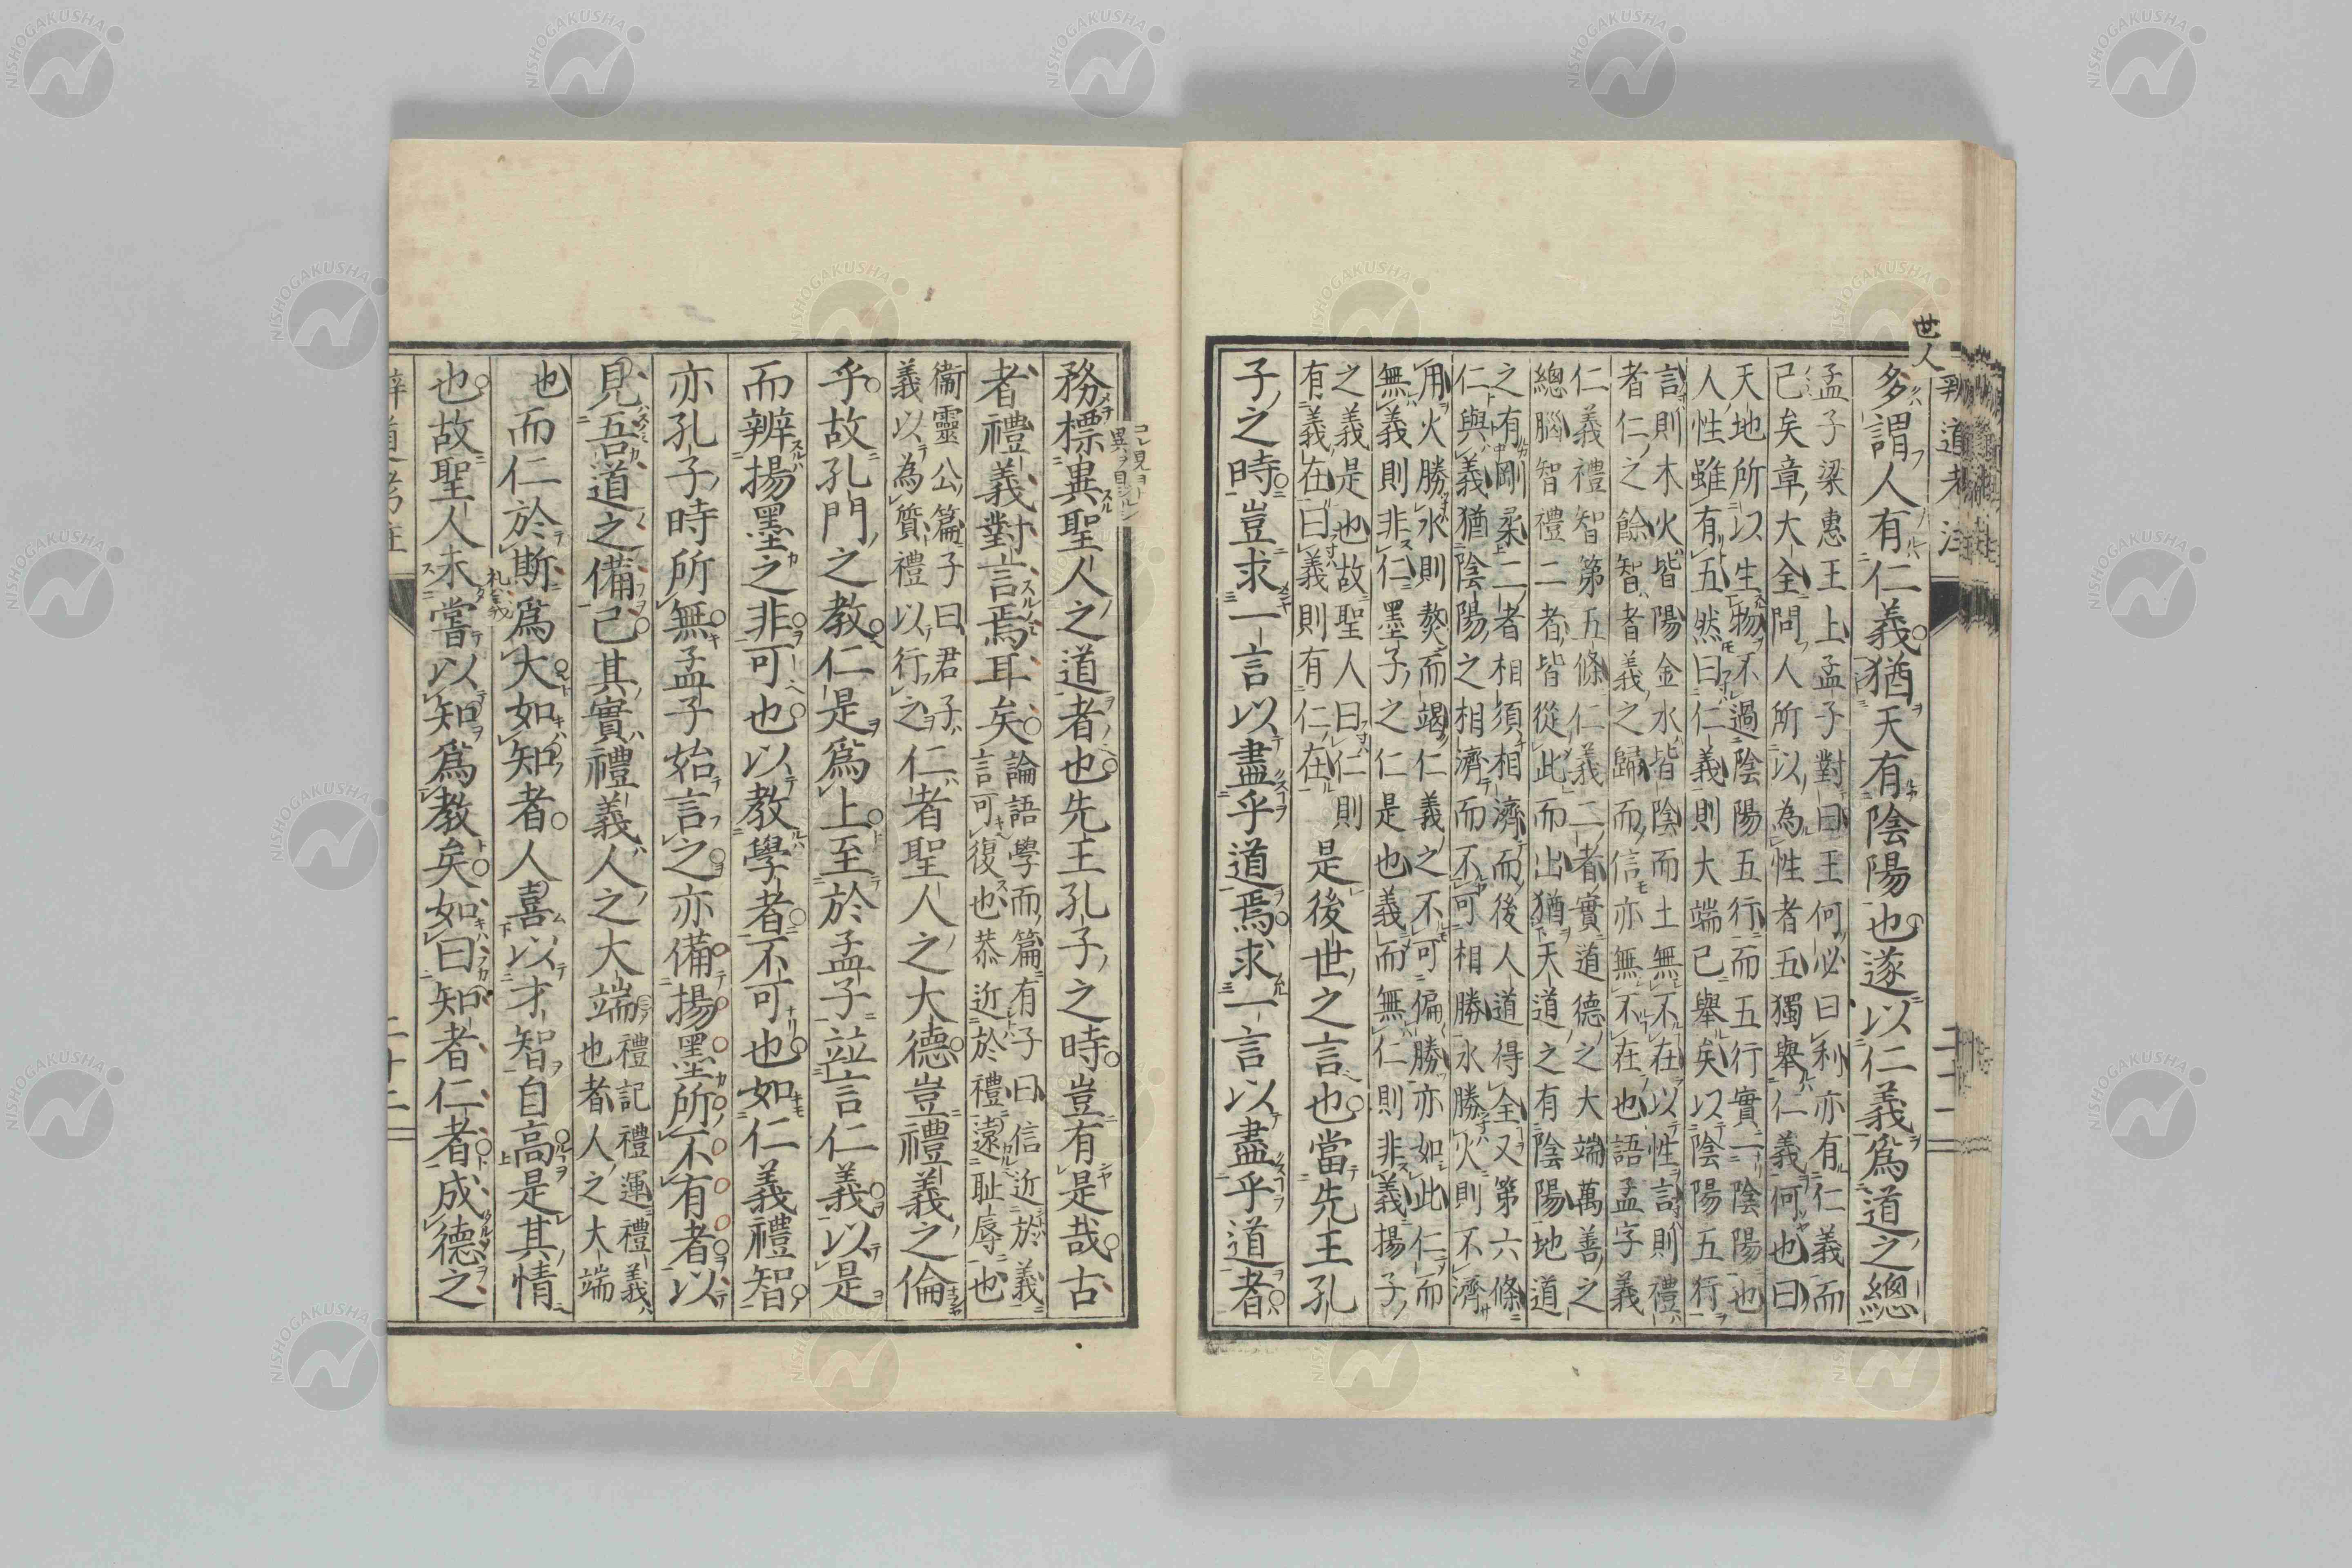 世人
辨道考注
多謂人有仁義猶天有陰陽也遂以仁義爲道之總
孟子梁惠王上孟子對曰王何必曰利亦有仁義而
已矣章大全問人所以為性者五獨舉仁義何也曰
天地所以生物不過陰陽五行而五行實一陰陽也
人性雖有五然曰仁義則大端已舉矣以陰陽五行
言則木火皆陽金水皆陰而土無不在以性言則禮
者仁之餘智者義之歸而信亦無不在也語孟字義
仁義禮智第五條仁義二者實道德之大端萬善之
總腦智禮二者皆從此而出猶天道之有陰陽地道
之有剛柔二者相須相濟而後人道得全又第六條
仁與義猶陰陽之相濟而不可相勝水勝火則不濟
用火勝水則熬而竭仁義之不可偏勝亦如此仁而
無義則非仁墨子之仁是也義而無仁則非義揚子
之義是也故聖人曰仁則
有義在曰義則有仁在
是後世之言也當先王孔
子之時豈求一言以盡乎道焉求一言以盡乎道者
務標異聖人之道者也先王孔子之時豈有是哉古
者禮義對言焉耳矣
論語學而篇有子曰信近於義
言可復也恭近於禮遠耻辱也
衞靈公篇子曰君子
義以為質禮以行之
仁者聖人之大德豈禮義之倫
乎故孔門之教仁是爲上至於孟子竝言仁義以是
而辨揚墨之非可也以教學者不可也如仁義禮智
亦孔子時所無孟子始言之亦備揚墨所不有者以
見吾道之備已其實禮義人之大端
禮記禮運禮義
也者人之大端
也而仁於斯爲大如知者人喜以才智自高是其情
也故聖人未嘗以知爲教矣如曰知者仁者成德之
二十二